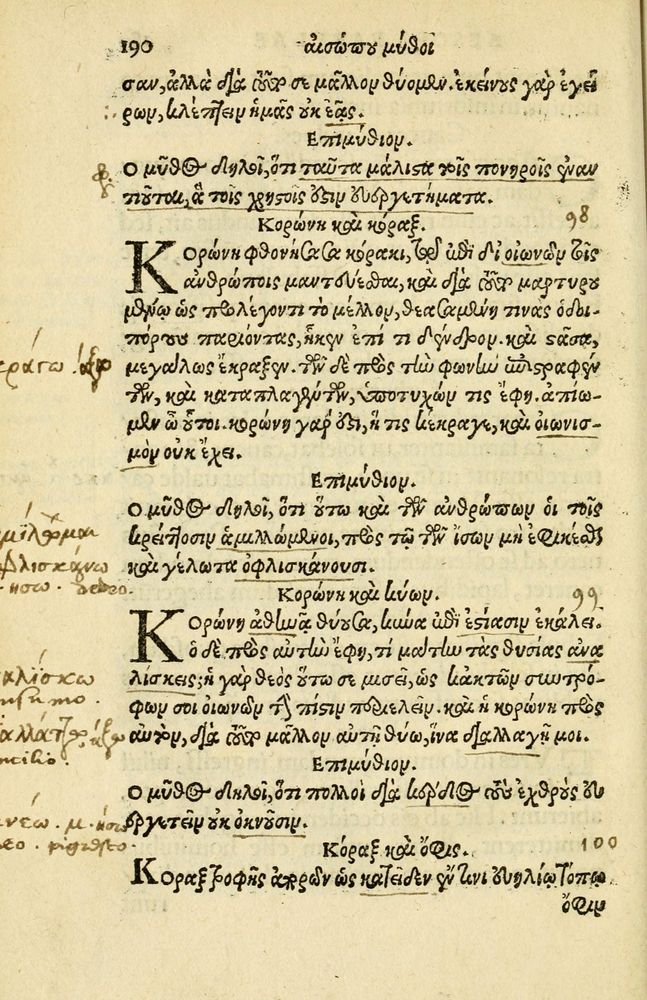 190 αισώπου μύθοι
σαν, ἀλλὰ διὰ τοῦτό σε μᾶλλον θύομεν. ἐκείνους γὰρ ἐγεί
ρων, κλέπτειν ἡμᾶς οὐκ ἐᾷς.
Επιμύθιον.
Ο μῦθος δηλοῖ, ὅτι ταῦτα μάλιστα τοῖς πονηροῖς ἐναν
τιοῦται, ἃ τοῖς χρηστοῖς ἐστιν εὐεργετήματα.
Κορώνη καὶ κόραξ. 98
ΚΟρώνη φθονήσασα κόρακι, ἐπὶ τῷ δι' οἰωνῶν τοῖς
ἀνθρώποις μαντεύεσθαι, καὶ διὰ τοῦτο μαρτυρου
μένῳ ὡς προλέγοντι τὸ μέλλον, θεασαμένη τινας ὁδοι-
πόρους παριόντας, ἧκεν ἐπί τι δένδρον. καὶ στᾶσα,
μεγάλως ἔκραξεν. τῶν δὲ πρὸς τὴν φωνὴν ἐπιστραφέν
των, καὶ καταπλαγέντων, ὑποτυχών τις ἔφη. ἀπίω-
μεν ὦ οὗτοι. κορώνη γάρ ἐστι, ἥ τις κέκραγε, καὶ οἰωνισ-
μὸν οὐκ ἔχει.
Επιμύθιον.
Ο μῦθος δηλοῖ, ὅτι οὕτω καὶ τῶν ἀνθρώπων οἱ τοῖς
κρείττοσιν ἁμιλλώμενοι, πρὸς τῷ τῶν ἴσων μὴ ἐφικέσθαι
καὶ γέλωτα ὀφλισκάνουσι.
Κορώνη καὶ κύων. 99
ΚΟρώνη ἀθηνᾷ θύουσα, κύνα ἐπὶ ἑστίασιν ἐκάλει.
ὁ δὲ πρὸς αὐτὴν ἔφη, τί μάτην τὰς θυσίας ἀνα
λίσκεις; ἡ γὰρ θεὸς οὕτω σε μισεῖ, ὡς κἀκ τῶν συντρό-
φων σοι οἰωνῶν τὴν πίστιν περιελεῖν. καὶ ἡ κορώνη πρὸς
αὐτόν, διὰ τοῦτο μᾶλλον αὐτῇ θύω, ἵνα διαλλαγῇ μοι.
Επιμύθιον.
Ο μῦθος δηλοῖ, ὅτι πολλοὶ διὰ κέρδος τοὺς ἐχθροὺς εὐ
εργετεῖν οὐκ ὀκνοῦσιν.
Κόραξ καὶ ὄφις. 100
Κοραξ τροφῆς ἀπορῶν ὡς κατεῖδεν ἔν τινι εὐηλίῳ τόπῳ
ὄφιν